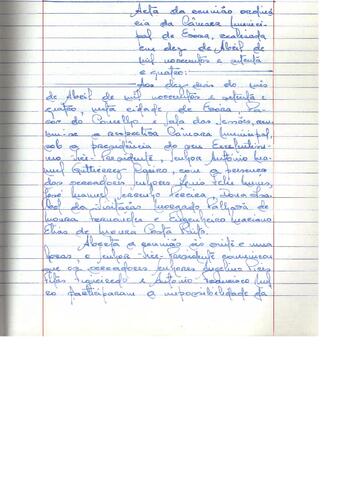 Acta da reunião ordiná-
ria da Câmara Munici-
pal de Évora, realizada
em dez de Abril de
mil novecentos e oitenta
e quatro:
Aos dez dias do mês
de Abril de mil novecentos e oitenta e
quatro, nesta cidade de Évora, Pa-
ços do Concelho e sala das sessões, reu-
niu-se a respectiva Câmara Municipal,
sob a presidência do seu Excelentíssi-
mo Vice-Presidente, senhor António Ma-
nuel, com a presença
dos vereadores senhores
José Manuel Pereira,
de
Moura Fernandes e Engenheiro Mariano
Elias de Moura Costa Pinto.
Aberta a reunião às vinte e uma
horas, o senhor Vice-Presidente comunicou
que os vereadores senhores Angelino Pires
Figueiredo e António Francisco
participaram a impossibilidade da